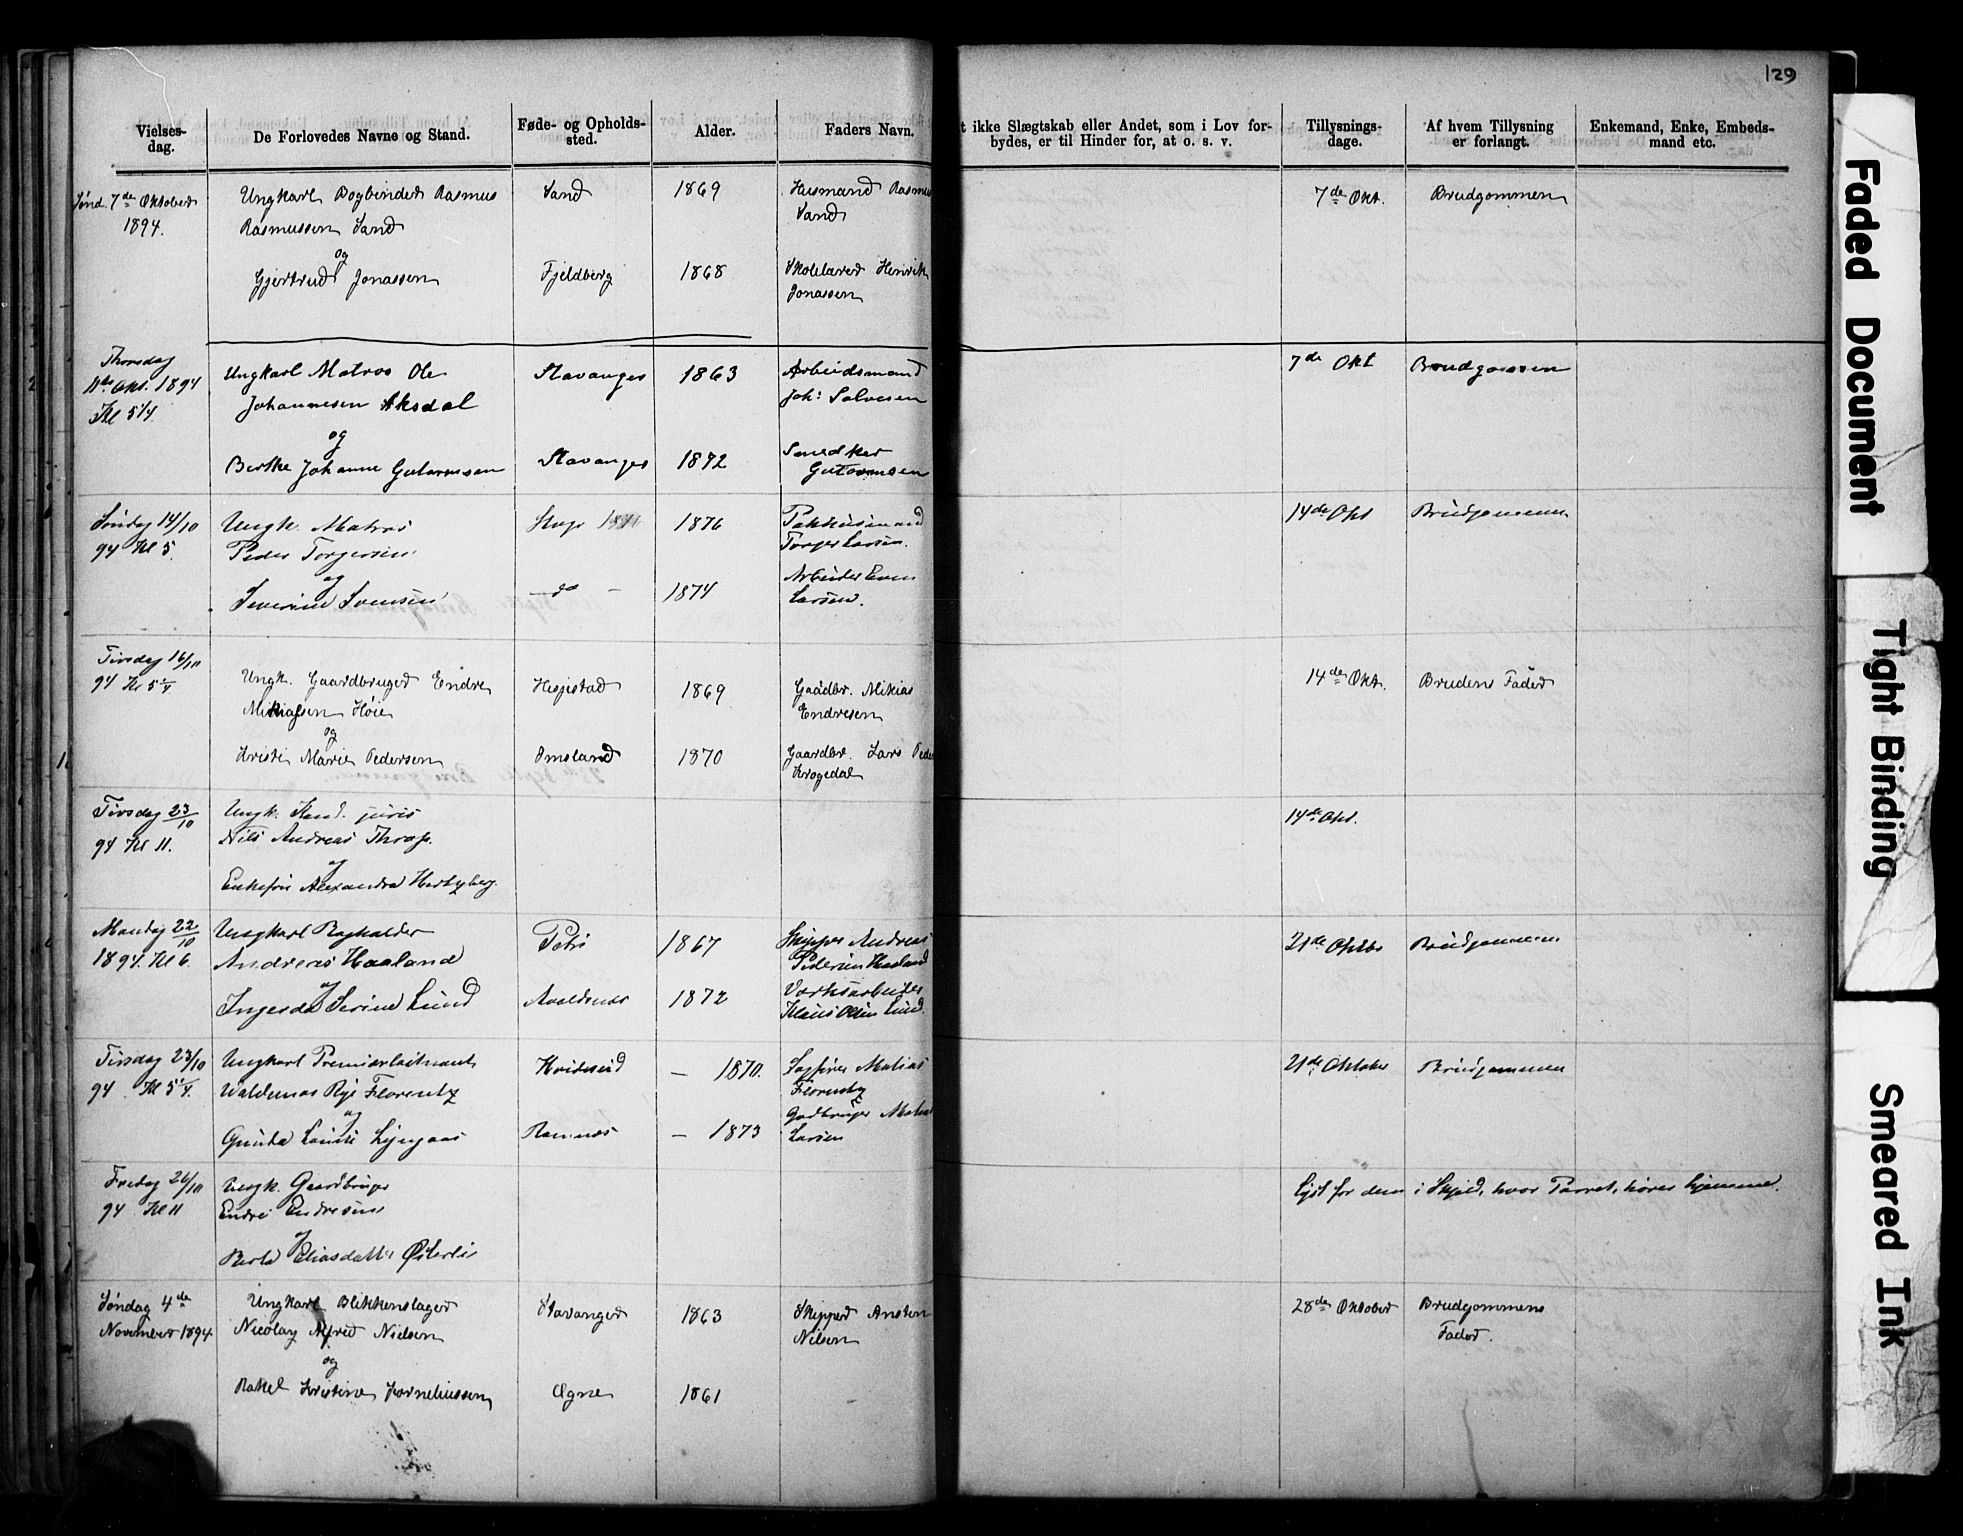 129
Vielses-
dag.
De Forlovedes Navne og Stand.
Føde- og Opholds-
sted.
Alder.
Faders Navn.
t ikke Slægtskab eller Andet, som i Lov for-
bydes, er til Hinder for, at o. s. v.
Tillysnings-
dage.
Af hvem Tillysning
er forlangt.
Enkemand, Enke, Embeds-
mand etc.
Sønd. 7de Oktober
1894.
Ungkarl Bogbinder Rasmus
Rasmussen Sand
og
Gjertrud Jonassen
Sand
Fjeldberg
1869
1868
Husmand Rasmus
Sand
Skolelærer Henrik
Jonassen
7de Okt.
Brudgommen
Thorsdag
11te Okt. 1894
Kl 5 1/4
Ungkarl Matros Ole
Johannesen Aksdal
og
Berthe Johanne Gutormsen
Stavanger
Stavanger
1863
1872
Arbeidsmand
Joh: Salvesen
Smed
Gutormsen
7de Okt
Brudgommen
Søndag 14/10
94 Kl 5.
Ungk. Matros
Peder Torgersen
og
Severine Svensen
1876
do
1874
Pakhusmand
Torger Larsen.
Arbeider Even
Larsen.
14de Okt
Brudgommen
Tirsdag 16/10
94 Kl 5 1/4
Ungk. Gaardbruger Endre
Mikiassen Høie
og
Kristi Marie Pedersen
Hegjestad
Omsland
1869
1870
Gaadbr. Mikias
Endresen
Gaardbr. Lars Peder
Krogedal
14de Okt.
Brudens Fader
Tirsdag 23/10
94 Kl 11.
Ungk. Kand. juris
Nils Andreas Thrap.
og
Enkefru Alexandra Hertzberg.
14de Okt.
Mandag 22/10
1894. Kl 6.
Ungkarl Bogholder
Andreas Haaland
og
Serine Lund
Petri
Avaldsnes
1867
1872
Skipper Andreas
Pedersen Haaland
Klaus Olsen Lund.
21de Oktbr
Brudgommen
Tirsdag 23/10
94 Kl 5 1/4.
Ungkarl Premierløitnant
Valdemar Rye Florentz
og
Gunda Louise Lyngaas
Hvideseid
Ramnes
– 1870.
– 1873
Sagfører Matias
Florentz
Gadbruger
Larsen
21de Oktober
Brudgommen
Fredag 26/10
94 Kl 11
Ungk. Gaardbruger
Endre Endresen
og
Berta Eliasdatter
Lyst for dem i Skjold, hvor Parret hører hjemme.
Søndag 4de
November 1894.
Ungkarl Blikkenslager
Nicolay Alfred Nielsen
og
Rakel Kristine Korneliussen
Stavanger
Ogne
1863
1861
Skipper Ansten
Nilsen
28de Oktober
Brudgommens
Fader.
Faded Document
Tight Binding
Smeared Ink